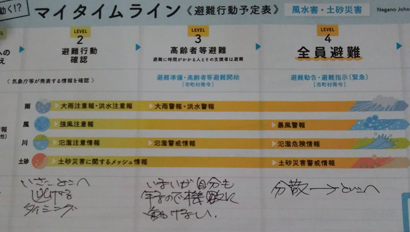 動く!?
マイタイムライン《避難行動予定表》
風水害・土砂災害
Nagano
LEVEL
2
避難行動
確認
LEVEL
3
高齢者等避難
避難に時間がかかる人とその支援者は避難
LEVEL
4
全員避難
〈気象庁等が発表する情報を確認〉
避難準備・高齢者等避難開始
【市町村発令】
避難勧告・避難指示(緊急)
【市町村発令】
雨
大雨注意報・洪水注意報
大雨警報・洪水警報
風
強風注意報
暴風警報
川
氾濫注意情報
氾濫警戒情報
氾濫危険情報
土砂
土砂災害に関するメッシュ情報
土砂災害警戒情報
いつどこへ
逃げる
タイミング
自分も
分散→どこへ